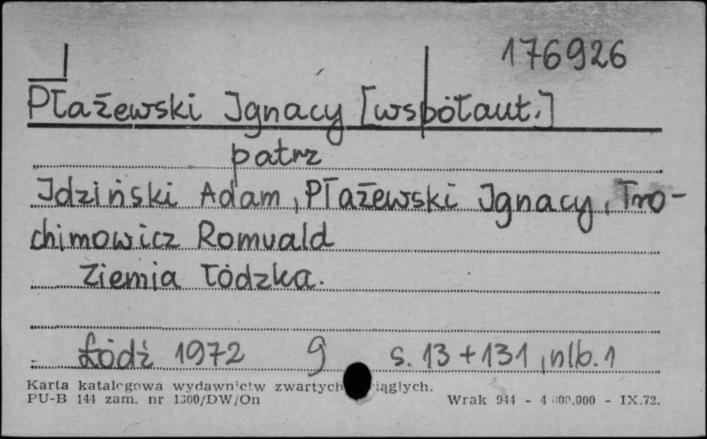 176926
Płażewski Ignacy [współaut.]
patrz
Idziński Adam, Płażewski Ignacy, Tro-
chimowicz Romuald
Ziemia łódzka.
Łódź 1972 g s. 13 + 131, nlb. 1
Karta katalogowa wydawnictw zwartych iągłych.
PU-B 144 zam. nr 1300/DW/On Wrak 944 - 4 000.000 - IX.72.